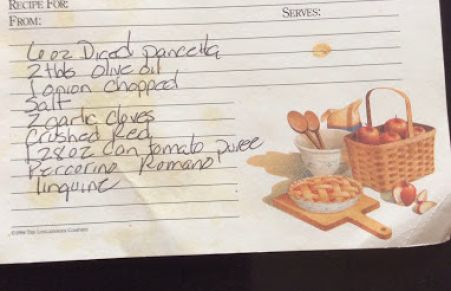 RECIPE FOR:
FROM:
SERVES:
6 oz Diced pancetta
2 tbs olive oil
1 onion chopped
Salt
2 garlic cloves
Crushed Red
1 28 oz can tomato puree
Peccorino Romano
linguine